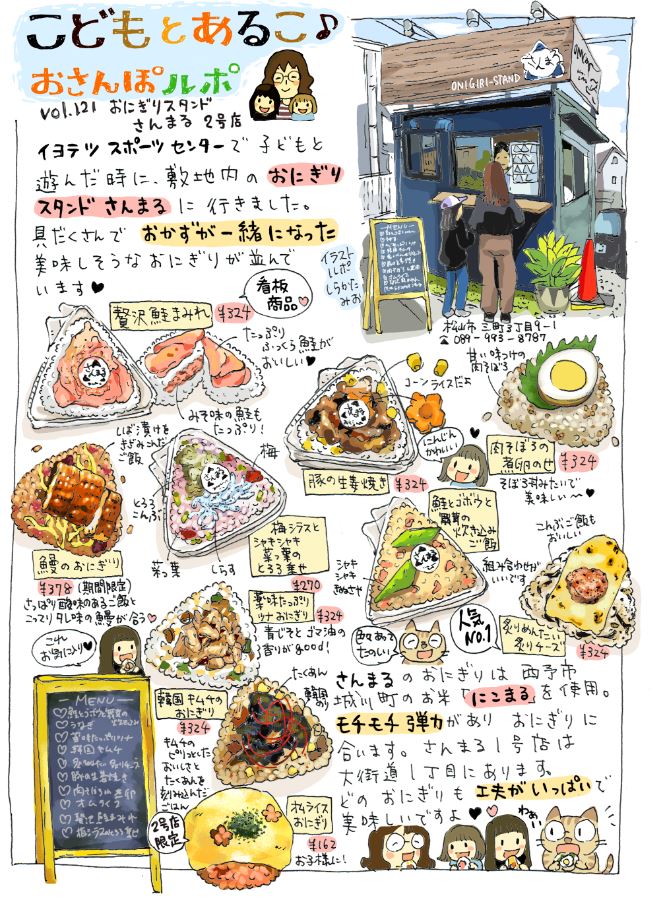 こどもとあるこ♪
おさんぽルポ
vol.121 おにぎりスタンド
さんまる 2号店
イヨテツ スポーツセンターで子どもと
遊んだ時に、敷地内のおにぎり
スタンド さんまるに行きました。
具だくさんで おかずが一緒になった
美味しそうなおにぎりが並んで
います♥
イラスト
ルポ
しらかた
みお
ONIGIRI-STAND
さんまる
MENU
松山市 三町3丁目9-1
☎ 089-993-8787
贅沢鮭まみれ
¥324
看板
商品♡
たっぷり
ふっくら鮭が
おいしい♥
みそ味の鮭も
たっぷり!
コーンライスだよ
豚の生姜焼き
¥324
にんじん
かわいい
甘い味つけの
肉そぼろ
肉そぼろの
煮卵のせ
¥324
そぼろ丼みたいで
美味しい〜♥
しば漬けを
きざみこんだ
ご飯
鰻のおにぎり
¥378 (期間限定)
さっぱり酸味のあるご飯と
こってりタレ味の鰻が合う♡
梅
とろろ
こんぶ
菜っ葉
しらす
梅シラスと
シャキシャキ
菜っ葉の
とろろ乗せ
¥270
鮭とゴボウと
舞茸の
炊き込み
ご飯
シャキ
シャキ
きぬさや
色々あって
たのしい
人気
No.1
こんぶご飯も
おいしい
組み合わせが
いいです
炙りめんたい
炙りチーズ
¥324
これ
お気に入り
薬味たっぷり
ツナおにぎり
¥324
青じそとゴマ油の
香りがgood!
韓国キムチの
おにぎり
¥324
キムチの
ピリッとした
おいしさと
たくあんを
刻み込んだ
ごはん
たくあん
韓国
のり
2号店
限定
オムライス
おにぎり
¥162
お子様に!
さんまるのおにぎりは西予市
城川町のお米「にこまる」を使用。
モチモチ弾力があり おにぎりに
合います。さんまる1号店は
大街道1丁目にあります。
どのおにぎりも工夫がいっぱいで
美味しいですよ♥
わぁい
MENU
♡鮭とゴボウと舞茸の
♡うなぎ
♡薬味たっぷりツナ
♡韓国キムチ
♡炙りめんたい炙りチーズ
♡豚の生姜焼き
♡肉そぼろ煮卵
♡オムライス
♡贅沢鮭まみれ
♡梅シラスとろろ乗せ